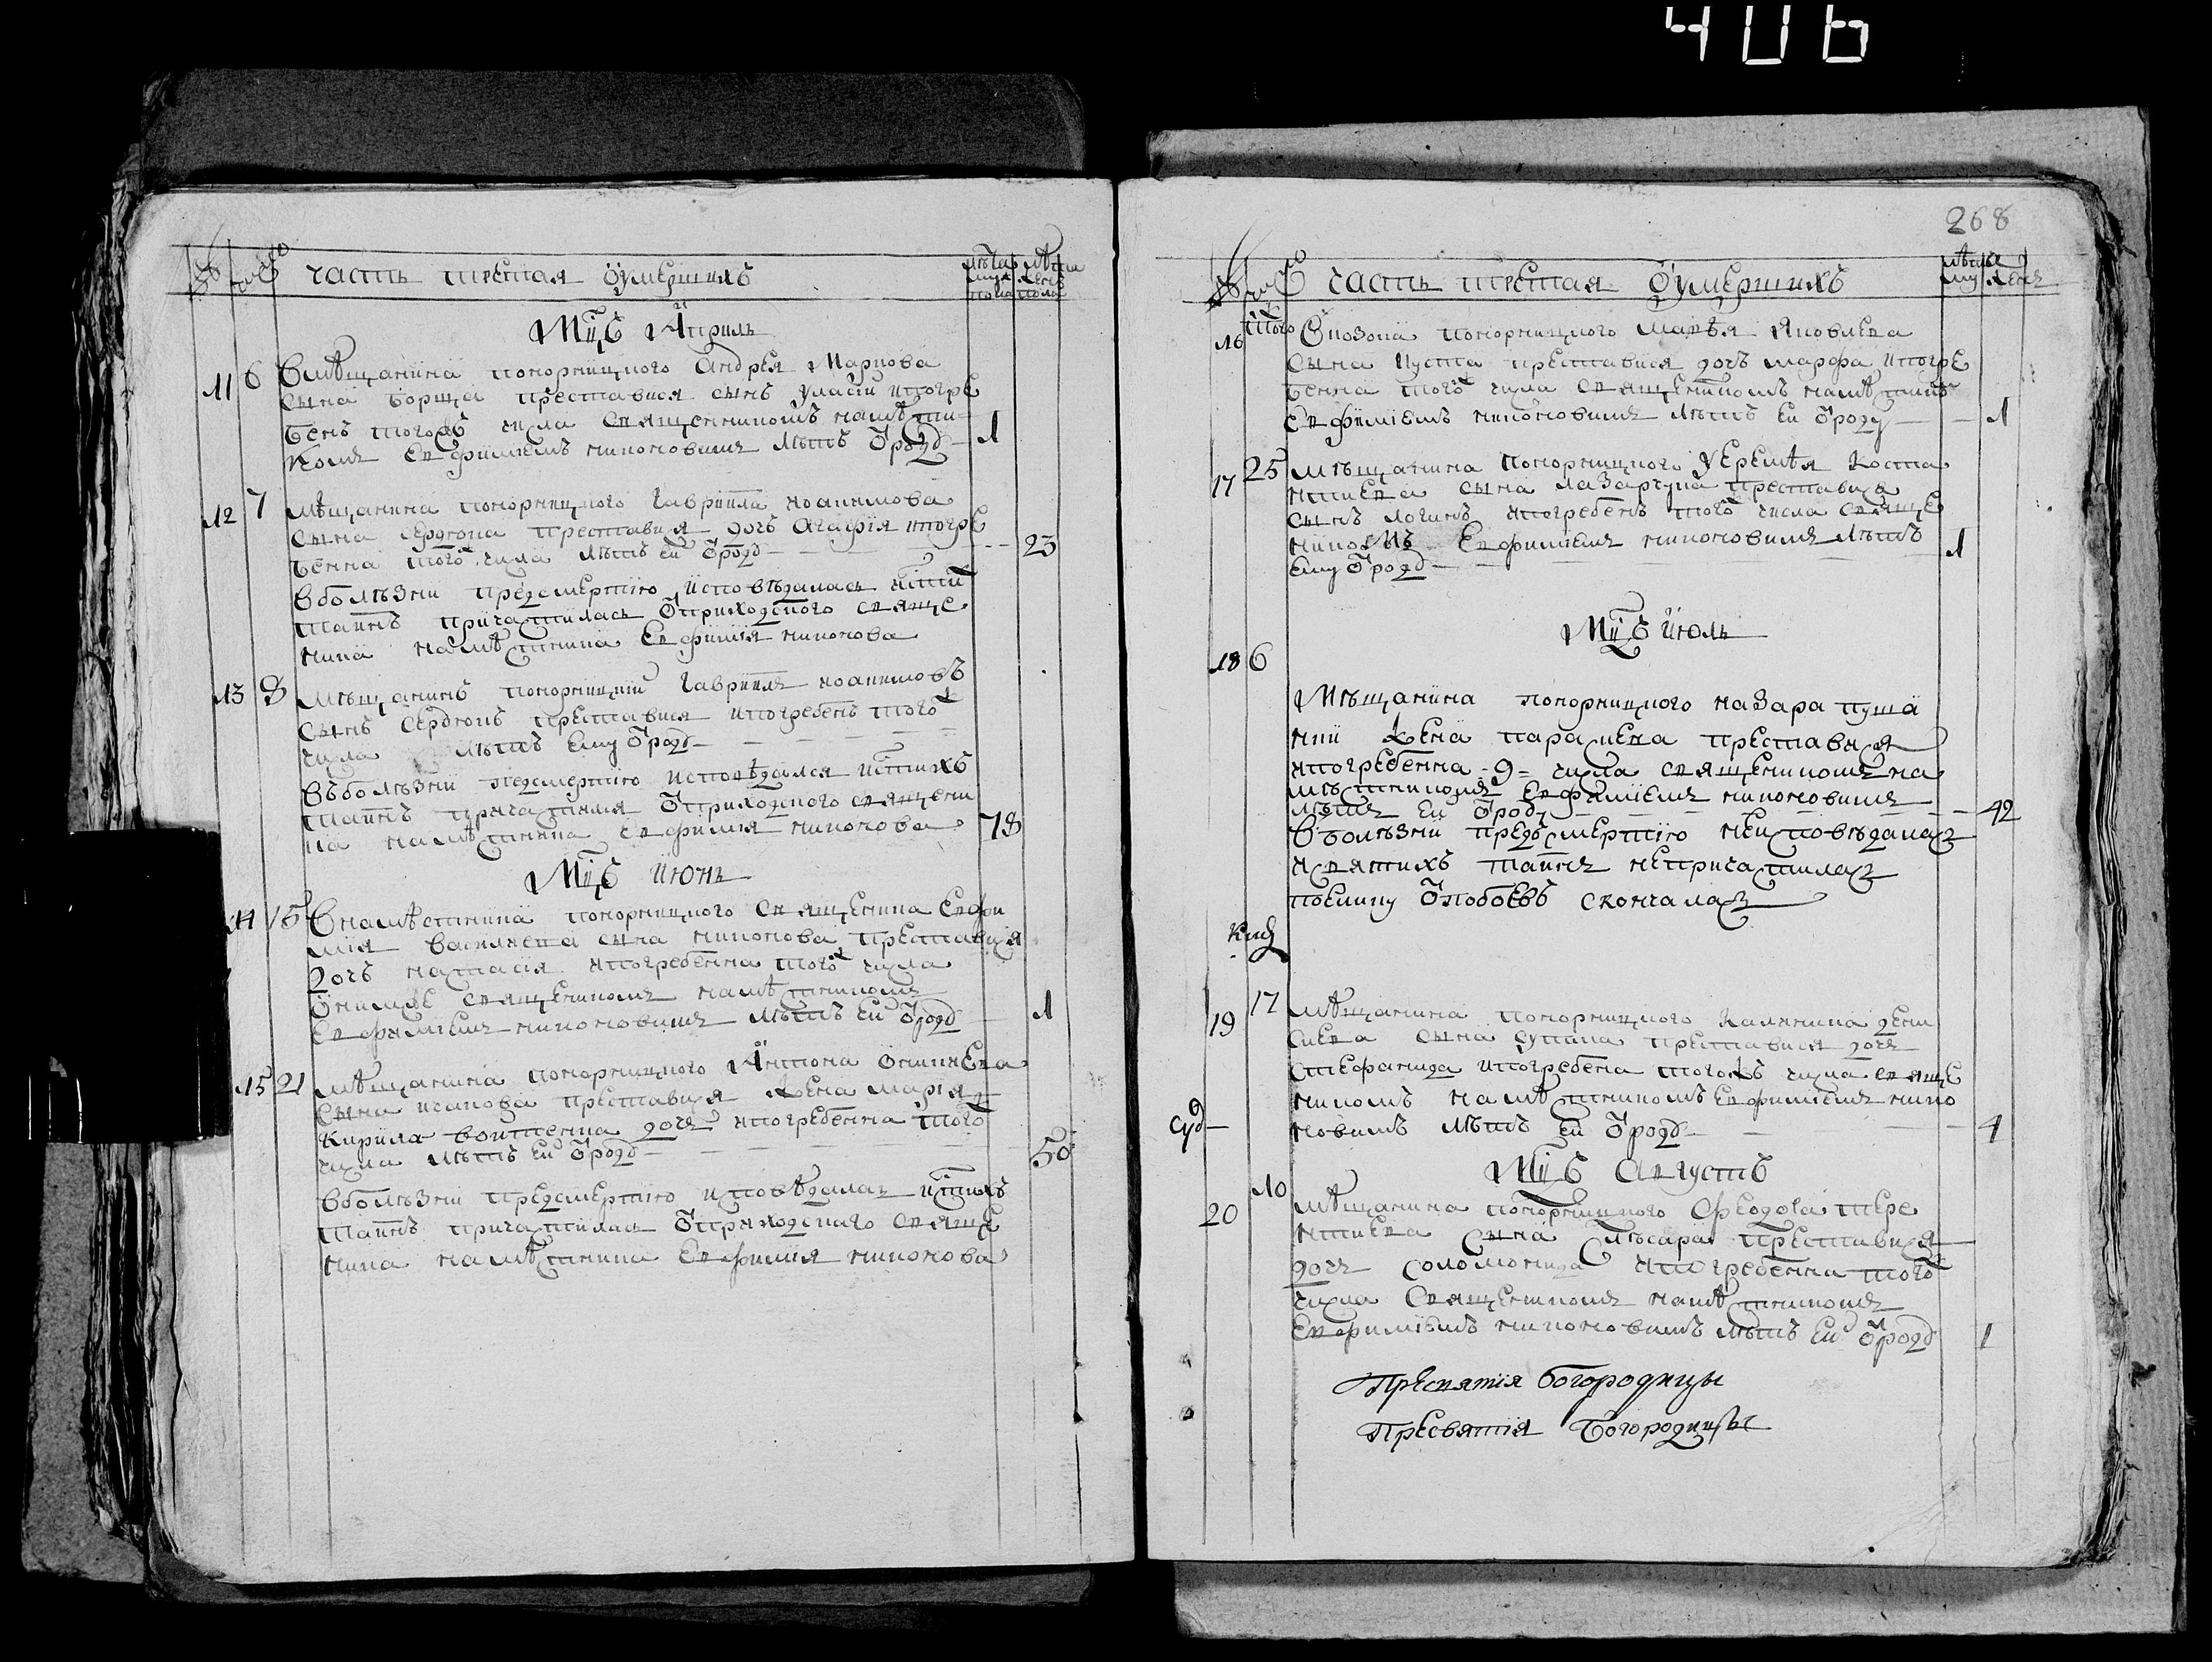 406
часть третая Оумершихъ
Мцъ Априль
11 6 Омѣщанина понорницкого Андрея Маркова
сына Борща преставися сынъ Уласій и погре
бенъ тогожъ числа священникомъ намѣстни
комъ Евфимиемъ никоновимъ лѣтъ Ѿ рожд 1
12 7 мѣщанина понорницкого Гавриила иоакимова
сына Сердюка преставися дочъ Агафія и погре
бенна того числа лѣтъ ей Ѿ рожд 23
Вболѣзни предсмертію исповѣдалась истих
таинъ причастилась Ѿ приходского священ
ника намѣстника Евфимія никонова
13 8 Мѣщанинъ понорницкій Гавриилъ иоакимовъ
сынъ Сердюкъ преставися и погребенъ того
числа лѣтъ ему Ѿ рожд
Въболѣзни педсмертію исповѣдался истихъ
таинъ причастился Ѿ приходского священи
ка намѣстника Евфимія никонова 78
Мцъ июнь
14 15 Онамѣстника понорницкого священика Евфи
мія василиева сына никонова преставися
дочъ настасія и погребенна того числа
онимже священикомъ намѣстникомъ
Евфимиемъ никоновимъ лѣтъ ей Ѿ рожд 1
15 21 мѣщанина понорницкого Антона
сына исакова преставися жена марія
Кирила дочъ и погребенна того
числа лѣтъ ей Ѿ рожд 50
Вболѣзни предсмертію исповѣдалась истихъ
таинъ причастилась Ѿ приходского священ
ника намѣстника Евфимія никонова
268
часть третая Оумершихъ
16 того Окозака понорницкого Яковлева
сына преставися дочъ марфа и погре
бенна того числа священикомъ намѣстник
евфимиемъ никоновимъ лѣтъ ей Ѿ рожд 1
17 25 мѣщанина понорницкого Уеремѣя Коста
нтиева сына лазарчука преставися
сынъ логинъ и погребенъ того числа свяще
никомъ Евфимиемъ никоновимъ лѣтъ
ему Ѿ рожд 1
Мцъ июль
18 6
Мѣщанина понорницкого назара
жена параскева преставися
и погребенна 9 числа священикомъ на
мѣстникомъ Евфимиемъ никоновимъ
лѣтъ ей Ѿ рожд 42
Вболѣзни предъ смертію неисповѣдалась
исвятихъ таинъ непричастилась
поелику Ѿ побоевъ скончалась
19 17 мѣщанина понорницкого Калиника дени
сиева сына супика преставися дочъ
Стефанида и погребена тогожъ числа свяще
никомъ намѣстникомъ Евфимиемъ нико
новимъ лѣтъ ей Ѿ рожд 1
Мцъ Августъ
20 10 мѣщанина понорницкого Феодота тере
нтиева сына преставися
дочъ соломонида и погребенна того
числа Священикомъ намѣстникомъ
Евфимиемъ никоновимъ лѣтъ ей Ѿ рожд 1
Пресвятія Богородицы
Пресвятія Богородицы